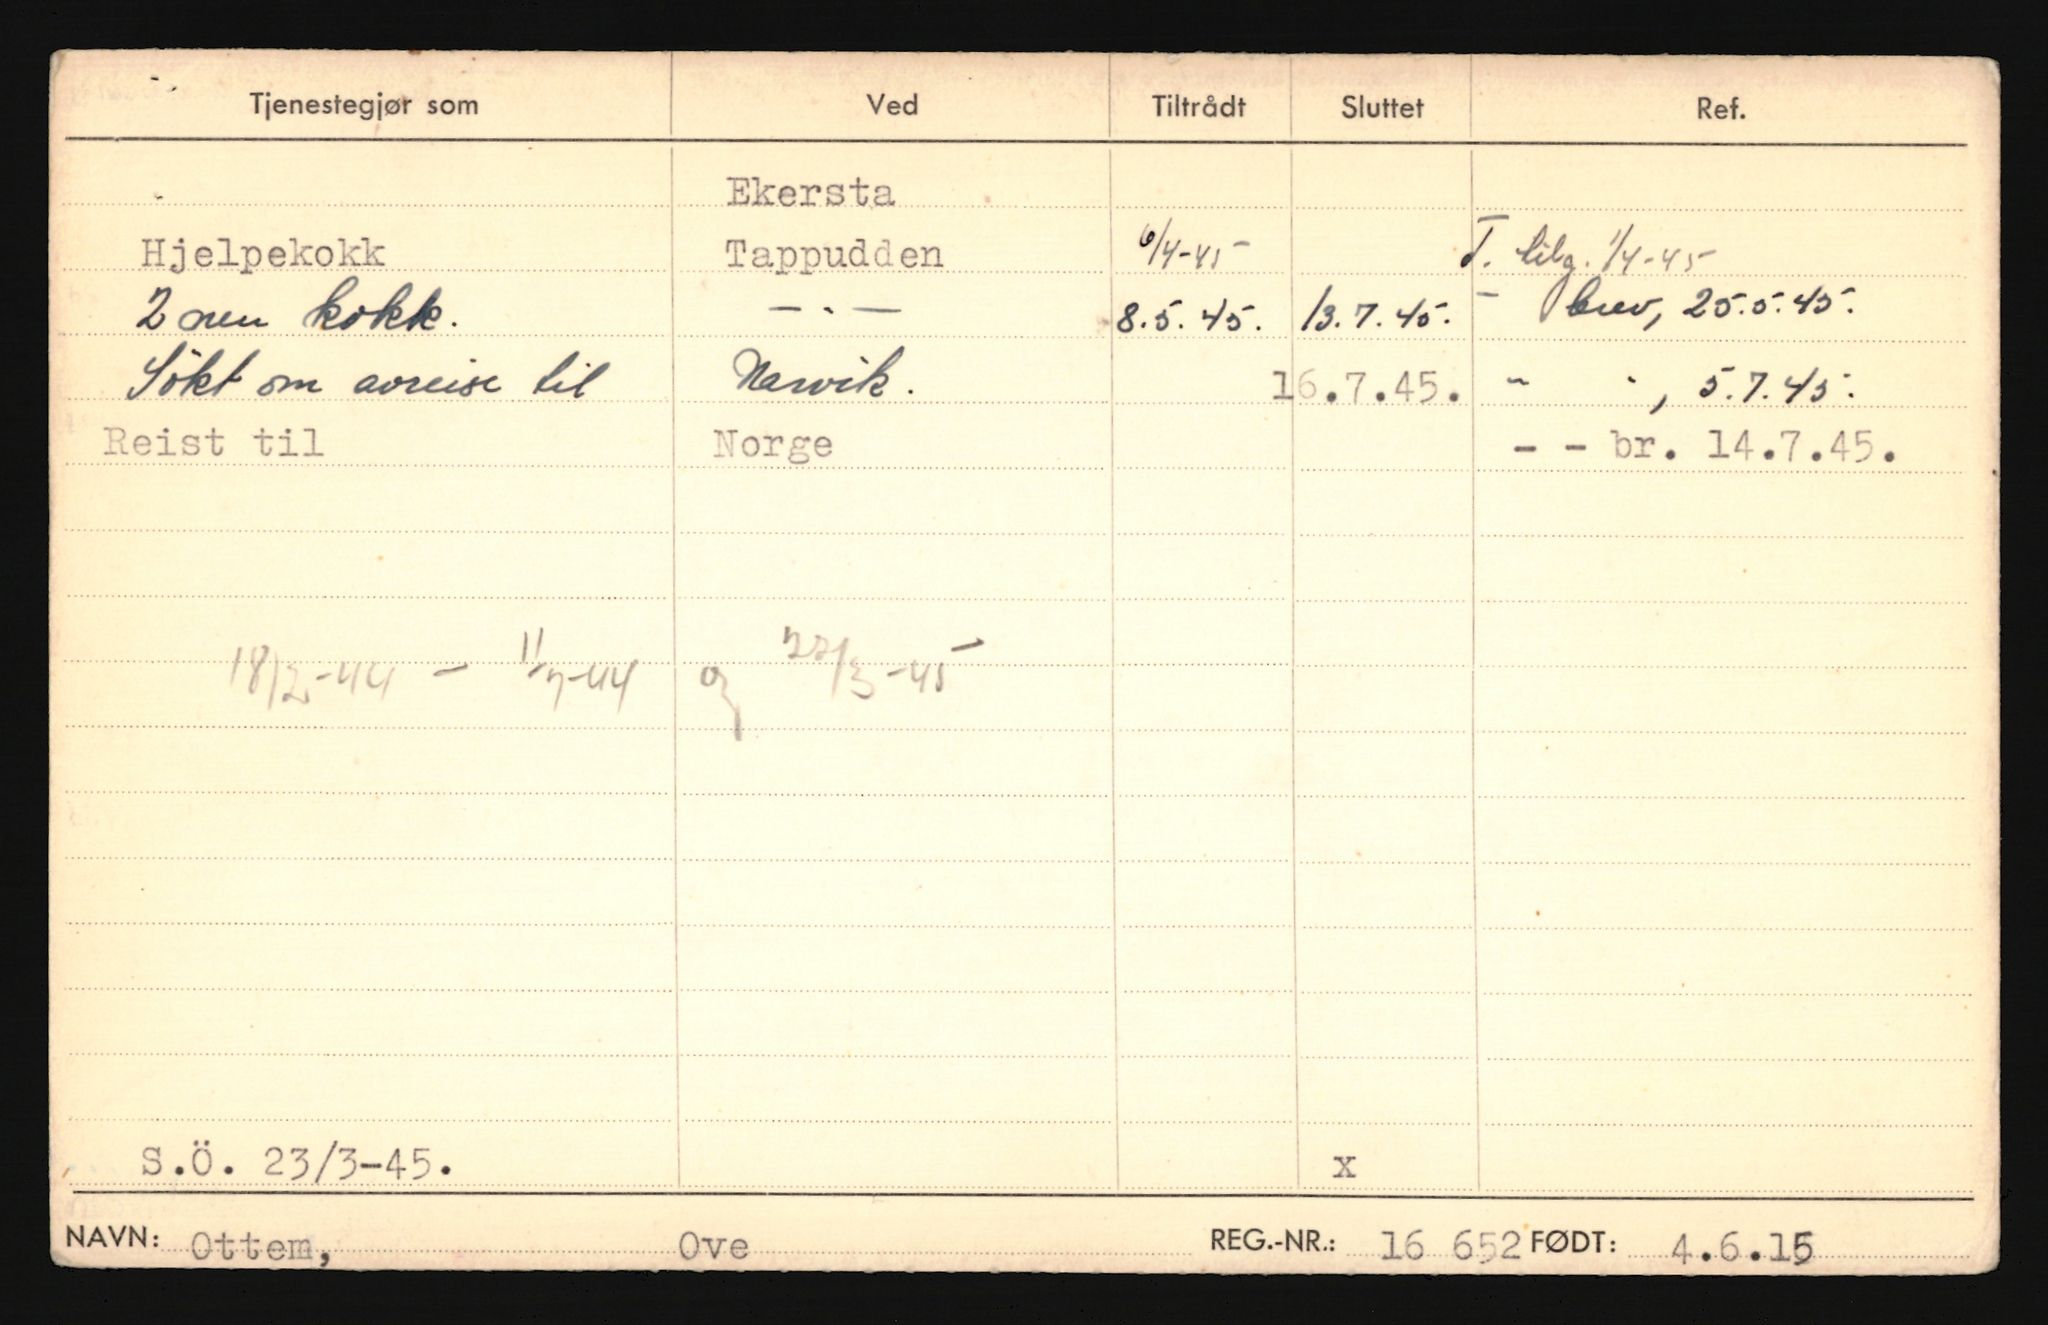 Tjenestegjør som Ved Tiltrådt Sluttet Ref.
Ekersta
Hjelpekokk Tappudden 6/4-45 T. tilg. 1/4-45
2nen kokk. — . — 8.5.45. 13.7.45. - brev, 25.5.45.
Søkt om avreise til Narvik. 16.7.45. - - , 5.7.45.
Reist til Norge - - br. 14.7.45.
18/2-44 - 11/7-44 og 22/3-45
S.Ö. 23/3-45. x
NAVN: Ottem, Ove REG.-NR.: 16 652 FØDT: 4.6.15